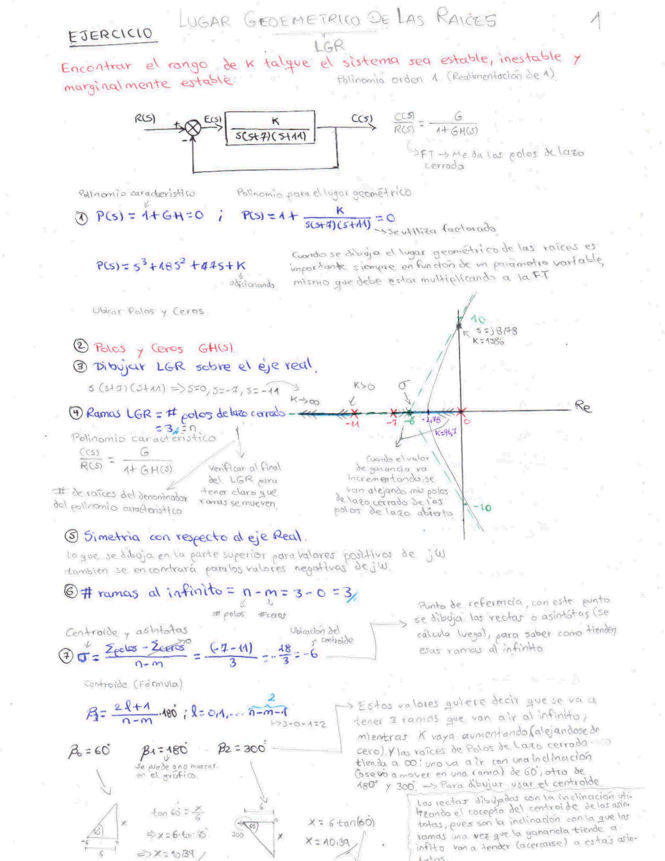 LUGAR GEOEMETRICO DE LAS RAICES
1
EJERCICIO
LGR
Encontrar el rango de K talque el sistema sea estable, inestable y
marginalmente estable.
Polinomio orden 1. (Realimentación de 1)
R(s)
+
E(s)
K
s(s+7)(s+11)
C(s)
-
C(s)/R(s) = G/(1+GH(s))
FT → Me da los polos de lazo
cerrado
Polinomio característico
Polinomio para el lugar geométrico
① P(s) = 1+GH=0 ; P(s)=1+ K/(s(s+7)(s+11)) =0
→ se utiliza factorado
P(s)= s³+18s²+77s+K
adicionando
Cuando se dibuja el lugar geométrico de las raíces es
importante siempre en función de un parámetro variable,
mismo que debe estar multiplicando a la FT
Ubicar Polos y Ceros.
② Polos y Ceros GH(s)
③ Dibujar LGR sobre el eje real.
s(s+7)(s+11) ⇒ s=0, s=-7, s=-11
K→∞
K>0
σ
10
s=j8,78
K=1386
Re
-11
-7
-6
-2,78
0
-10
④ Ramas LGR = # polos de lazo cerrado
= 3 = n
Polinomio característico
C(s)/R(s) = G/(1+GH(s))
Verificar al final
del LGR para
tener claro que
ramas se mueven.
# de raíces del denominador
del polinomio característico
Cuando el valor
de ganancia va
incrementando, se
van alejando mis polos
de lazo cerrado de los
polos de lazo abierto
⑤ Simetría con respecto al eje Real.
lo que se dibuja en la parte superior para valores positivos de jw
tambien se encontrará para los valores negativas de jw.
⑥ # ramas al infinito = n-m = 3-0 = 3
# polos # ceros
Centroide y asíntotas
Ubicación del
centroide
⑦ σ = (Σpolos - Σceros)/(n-m) = (-7-11)/3 = -18/3 = -6
Punto de referencia, con este punto
se dibuja las rectas o asintotas (se
cálcula luego), para saber como tienden
esas ramas al infinito.
Centroide (Formula)
2
(2l+1)/(n-m) ·180° ; l=0,1,... n-m-1
→3-0-1=2
β₀=60° β1=180° β2=300°
se puede o no marcar
en el gráfico.
→ Estos valores quiere decir que se va a
tener 3 ramas que van a ir al infinito,
mientras K vaya aumentando (alejandose de
cero). Y las raíces de Polos de Lazo cerrado
tienda a ∞: uno va a ir con una inclinación
(ose va a mover en una rama) de 60°, otro de
180° y 300° → Para dibujar usar el centroide
60
x
6
tan 60° = x/6
⇒ x=6·tan 60°
⇒ x=10,39
300
60
6
x
x=6·tan(60)
x=10,39
Las rectas dibujadas son la inclinación
del centroide de las
totas, pues son la inclinación con la que las
ramas una vez que la ganancia tiende a
infito van a tender (acercarse) a estas
totas.